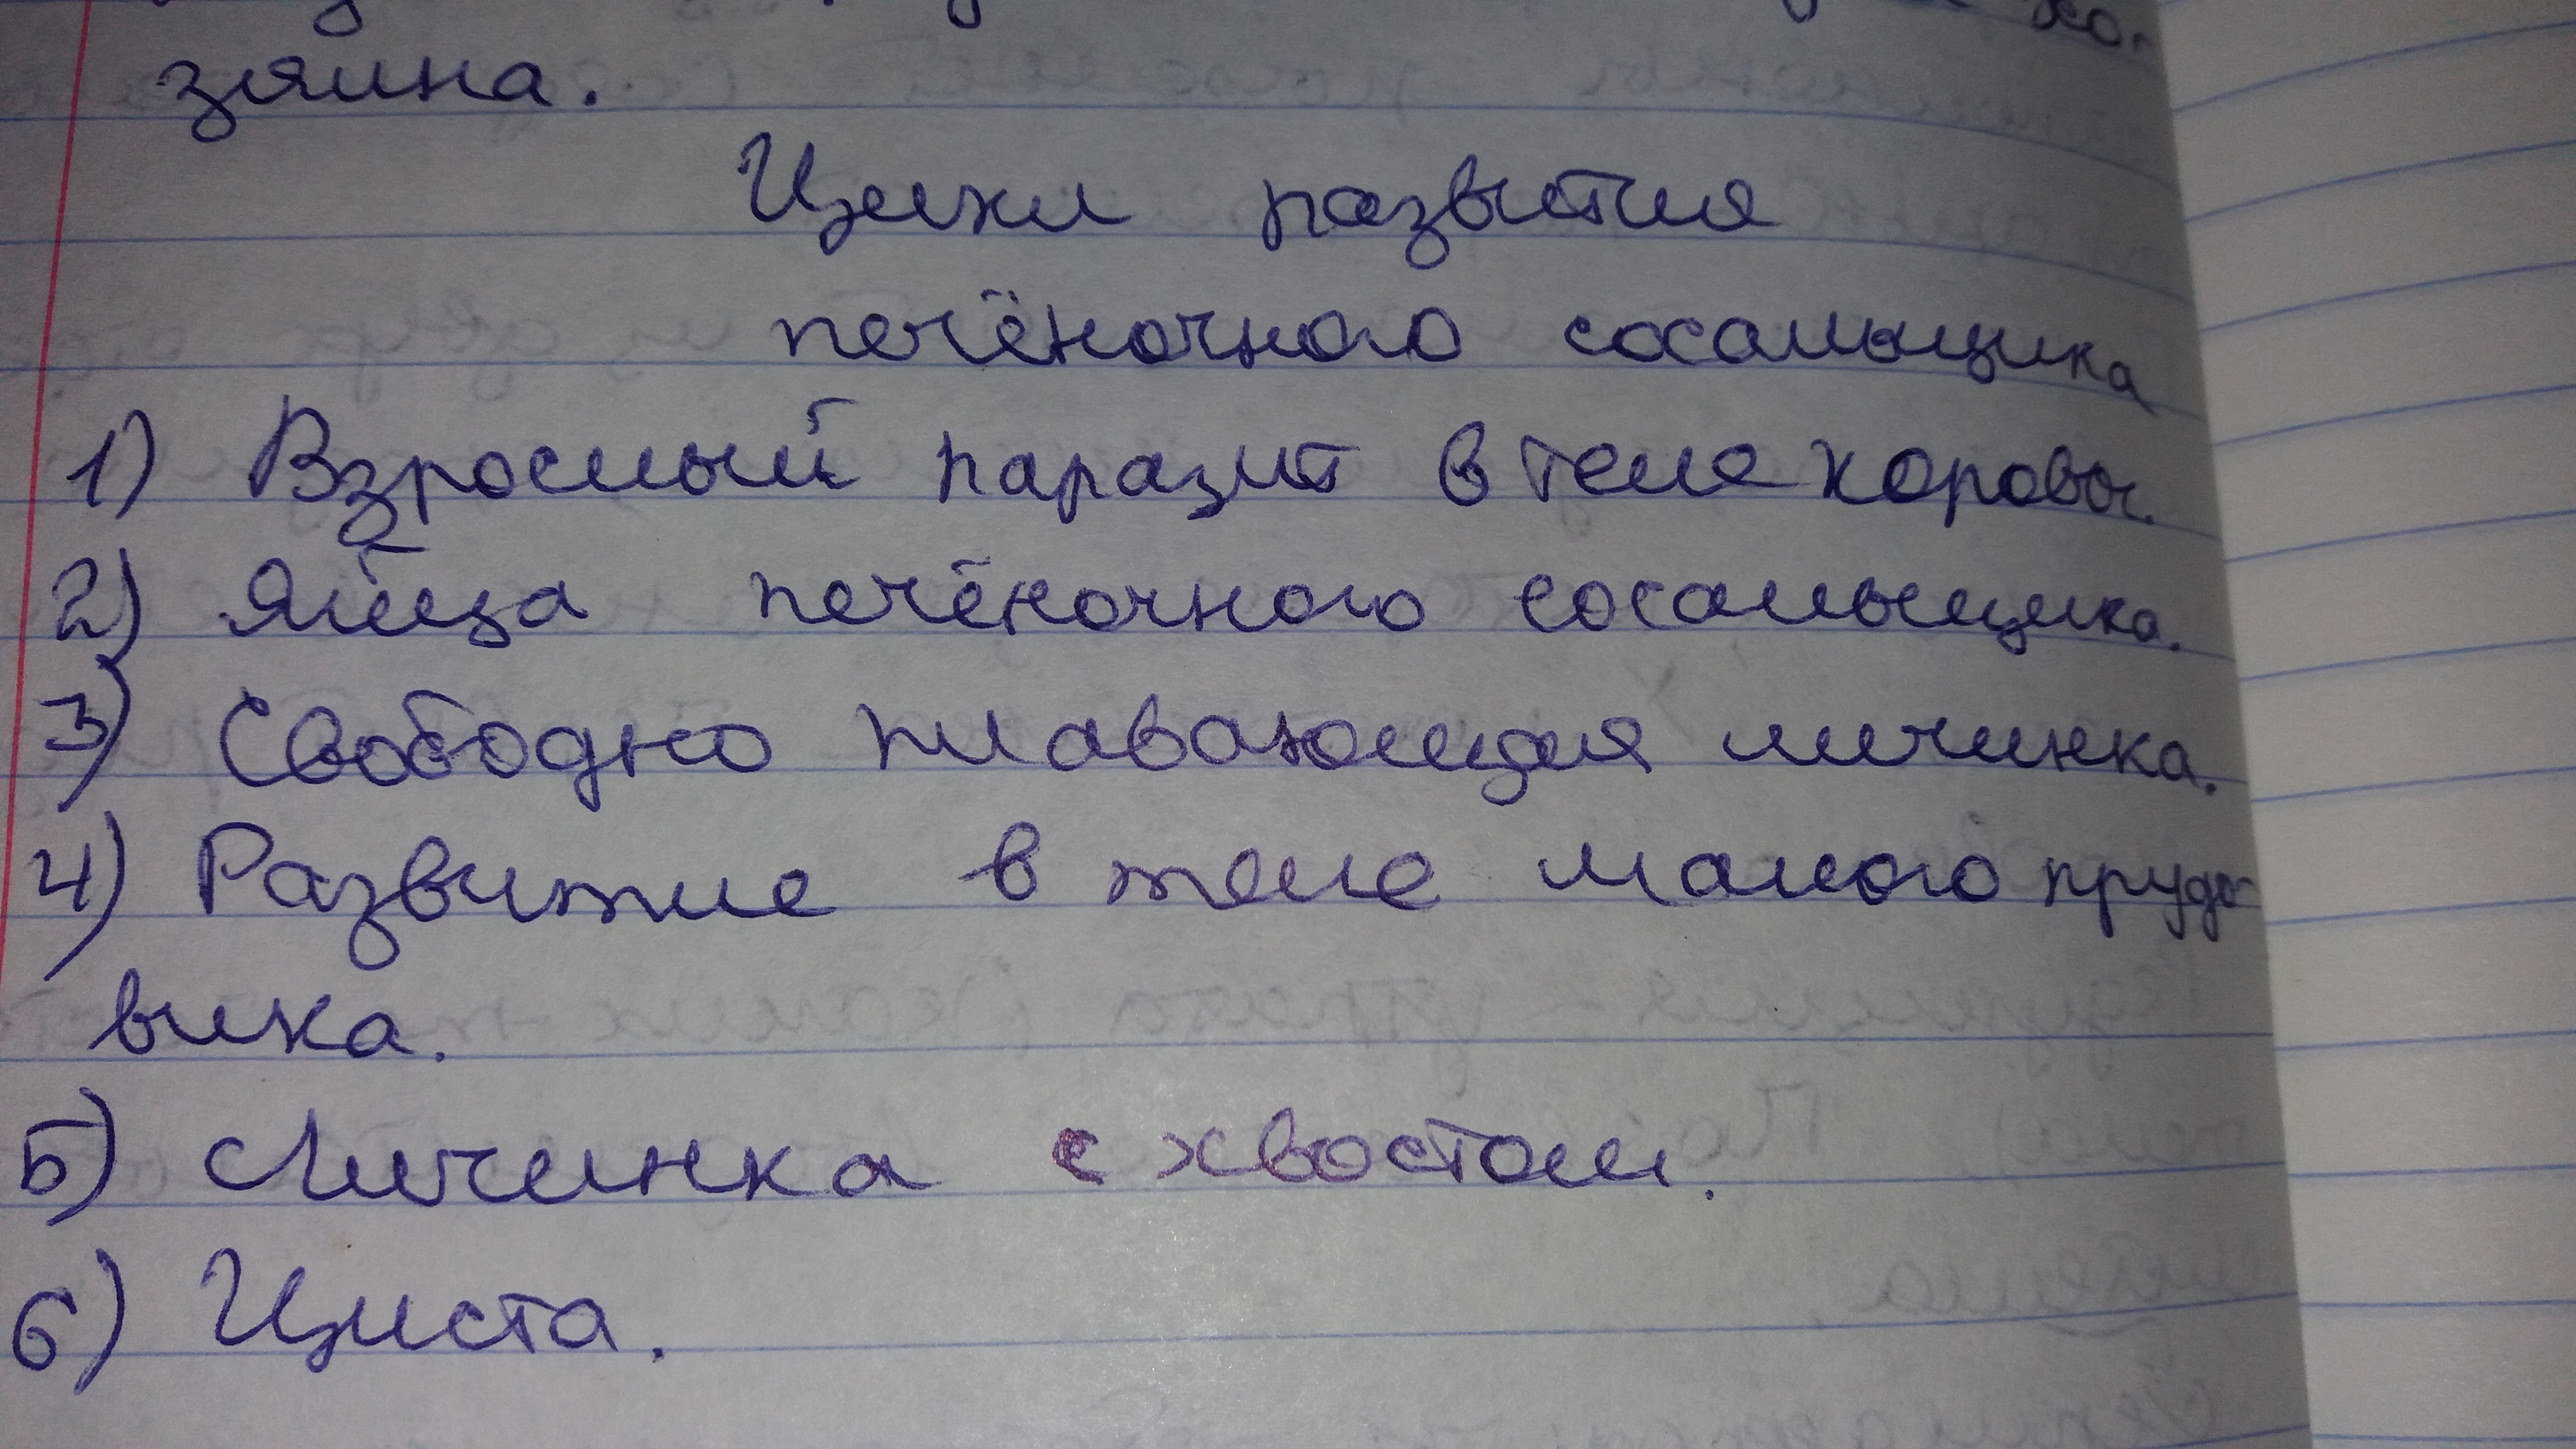 хо-
зяина.
Цикл развития
печёночного сосальщика
1) Взрослый паразит в теле коровы.
2) Яйца печёночного сосальщика.
3) Свободно плавающая личинка.
4) Развитие в теле малого прудо-
вика.
5) Личинка с хвостом.
6) Циста.